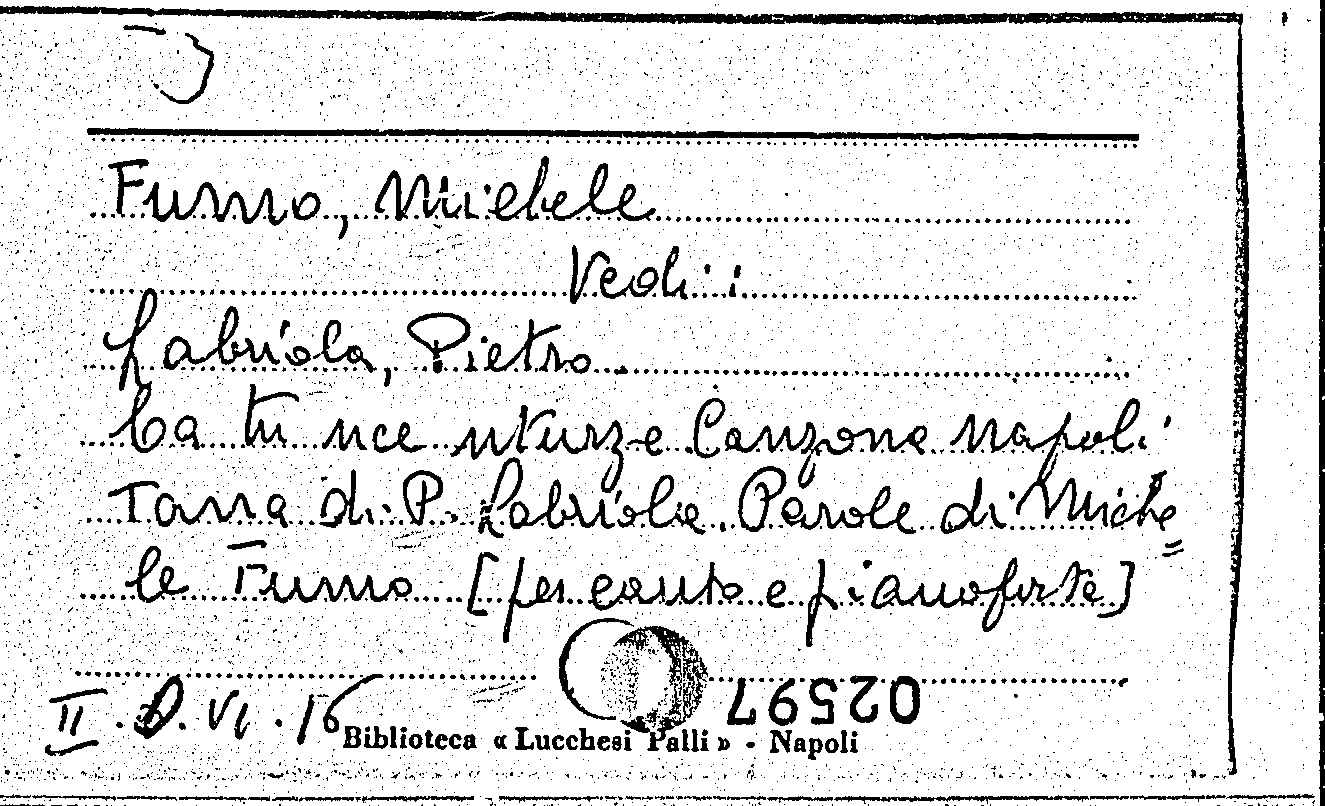 Fumo, Michele
Vedi:
Labriola, Pietro.
Ca tu nce nturze Canzone napoli
Tana di P. Labriola. Parole di Miche=
le Fumo [per canto e pianoforte]
02597
II. D. VI. 16
Biblioteca « Lucchesi Palli » - Napoli